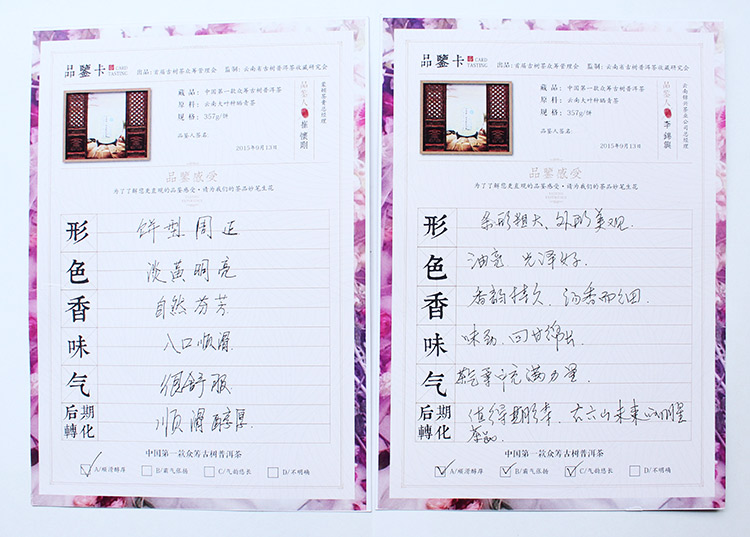 品鉴卡 CARD TASTING 出品:首届古树茶众筹管理会 监制:云南省古树普洱茶收藏研究会
藏 品:中国第一款众筹古树普洱茶
原 料:云南大叶种晒青茶
规 格:357g/饼
品鉴人签名:
2015年9月13日
品鉴人 崔怀刚
品鉴感受
为了了解您更直观的品鉴感受·请为我们的茶品妙笔生花
形 饼型周正
色 淡黄明亮
香 自然芬芳
味 入口顺滑
气 很舒服
后期轉化 顺滑醇厚
中国第一款众筹古树普洱茶
A/顺滑醇厚 B/霸气张扬 C/气韵悠长 D/不明确
品鉴卡 CARD TASTING 出品:首届古树茶众筹管理会 监制:云南省古树普洱茶收藏研究会
藏 品:中国第一款众筹古树普洱茶
原 料:云南大叶种晒青茶
规 格:357g/饼
品鉴人签名:
2015年9月13日
品鉴人 李
品鉴感受
为了了解您更直观的品鉴感受·请为我们的茶品妙笔生花
形 条形粗大、外形美观.
色 油亮 光泽好.
香 香韵持久、汤香而细.
味 味劲、回甘绵长
气 充满力量.
后期轉化 值得期待, 古六山未来的明星
茶品.
中国第一款众筹古树普洱茶
A/顺滑醇厚 B/霸气张扬 C/气韵悠长 D/不明确